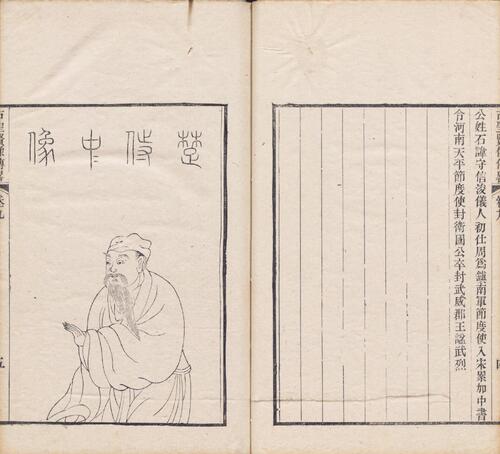 公姓石諱守信浚儀人初仕周爲鎮南軍節度使入宋累加中書
令河南天平節度使封衛國公卒封武威郡王諡武烈
楚侍中像
古聖賢像傳畧
卷九
五